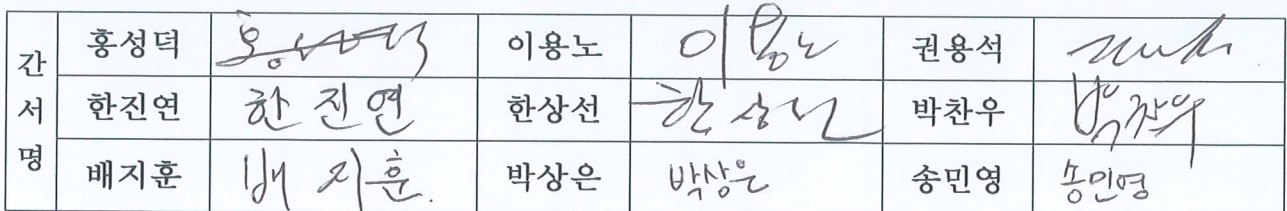 간서명
홍성덕 홍성덕 이용노 이용노 권용석
한진연 한진연 한상선 한상선 박찬우 박찬우
배지훈 배지훈. 박상은 박상은 송민영 송민영